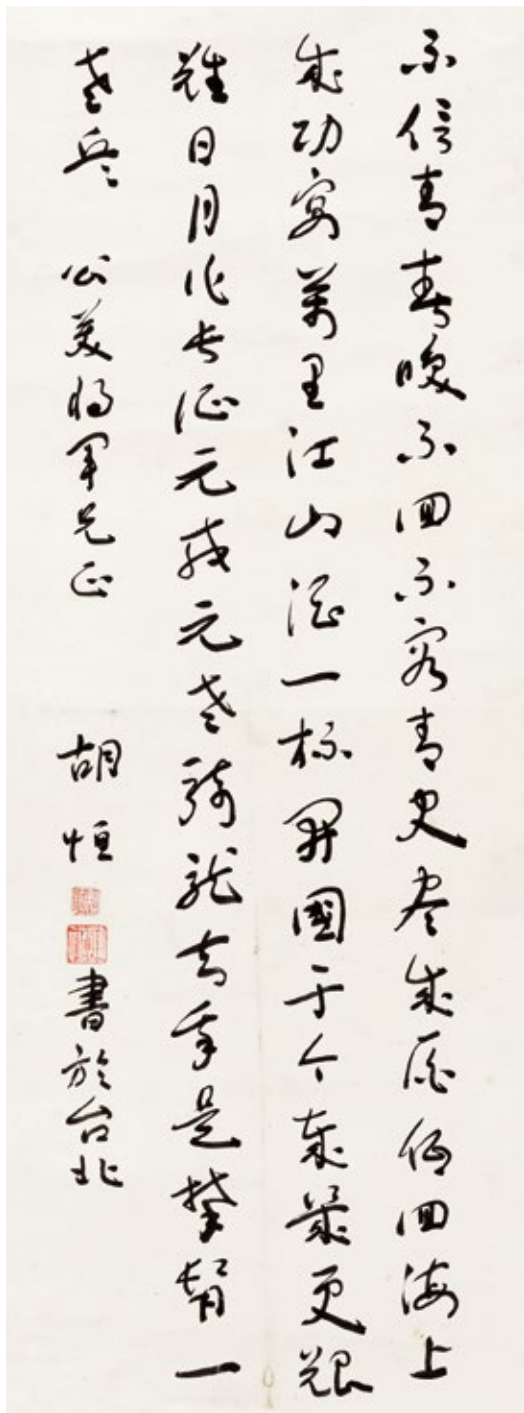 不信青春喚不回不容青史盡成灰低回海上
成功宴萬里江山酒一杯開國于今歲幾更艱
難日月作長征元戎元老騎龍去是攀髯一
老兵 公美將軍兄正 胡恒 書於台北